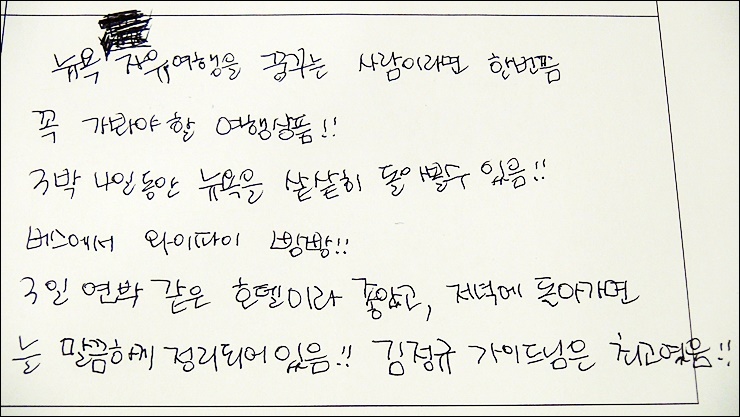 뉴욕 자유여행을 꿈꾸는 사람이라면 한번쯤
꼭 가봐야 할 여행상품!!
3박 4일동안 뉴욕을 샅샅히 돌아볼수 있음!!
버스에서 와이파이 빵빵!!
3일 연박 같은 호텔이라 좋았고, 저녁에 돌아가면
늘 말끔하게 정리되어 있음!! 김정규 가이드님은 최고였음!!